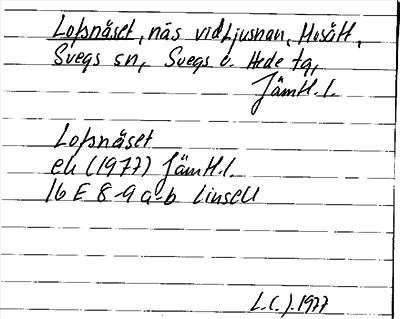 Lossnäset, näs vid Ljusnan, Mosätt,
Svegs sn, Svegs o. Hede tg,
Jämtl. l.
Lossnäset
ek (1977) Jämtl. l.
16 E 8-9 a-b Linsell
L.C.J. 1977